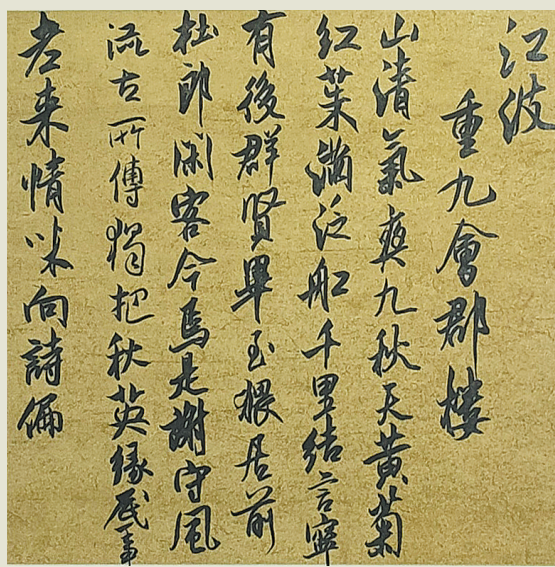 江波
重九會郡樓
山清氣爽九秋天黃菊
紅茱滿泛船千里結言寧
有後群賢畢至猥居前
杜郎閑客今焉是謝守風
流古所傳獨把秋英緣底事
老來情味向詩偏